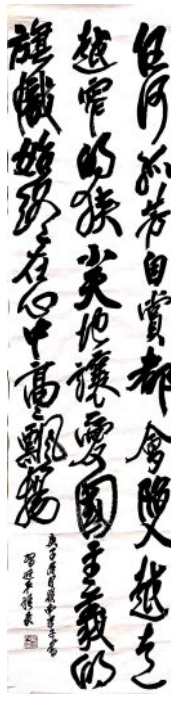 任何孤芳自賞都會陷入越走
越窄的狹小天地讓愛國主義的
旗幟始終在心中高々飄揚
庚子
習近平